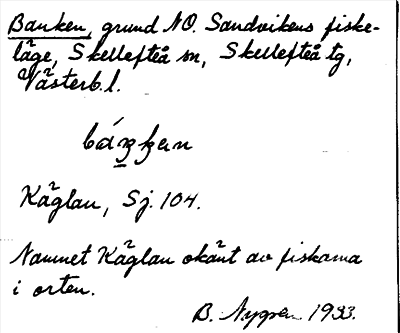 Banken, grund NO. Sandvikens fiske-
läge, Skellefteå sn, Skellefteå tg,
Västerb. l.
Käglan, Sj. 104.
Namnet Käglan okänt av fiskarna
i orten.
B. Nygren 1933.